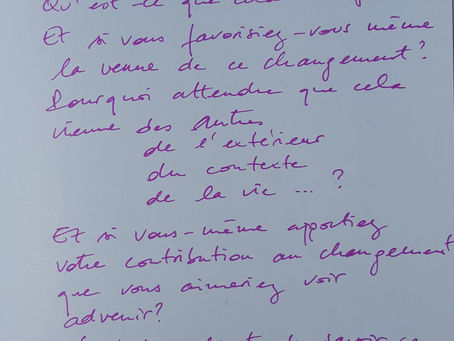 Qu'est-ce que
Et si vous favorisiez-vous même
la venue de ce changement?
Pourquoi attendre que cela
vienne des autres
de l'extérieur
du contexte
de la vie ... ?
Et si vous-même apportiez
votre contribution au changement
que vous aimeriez voir
advenir?